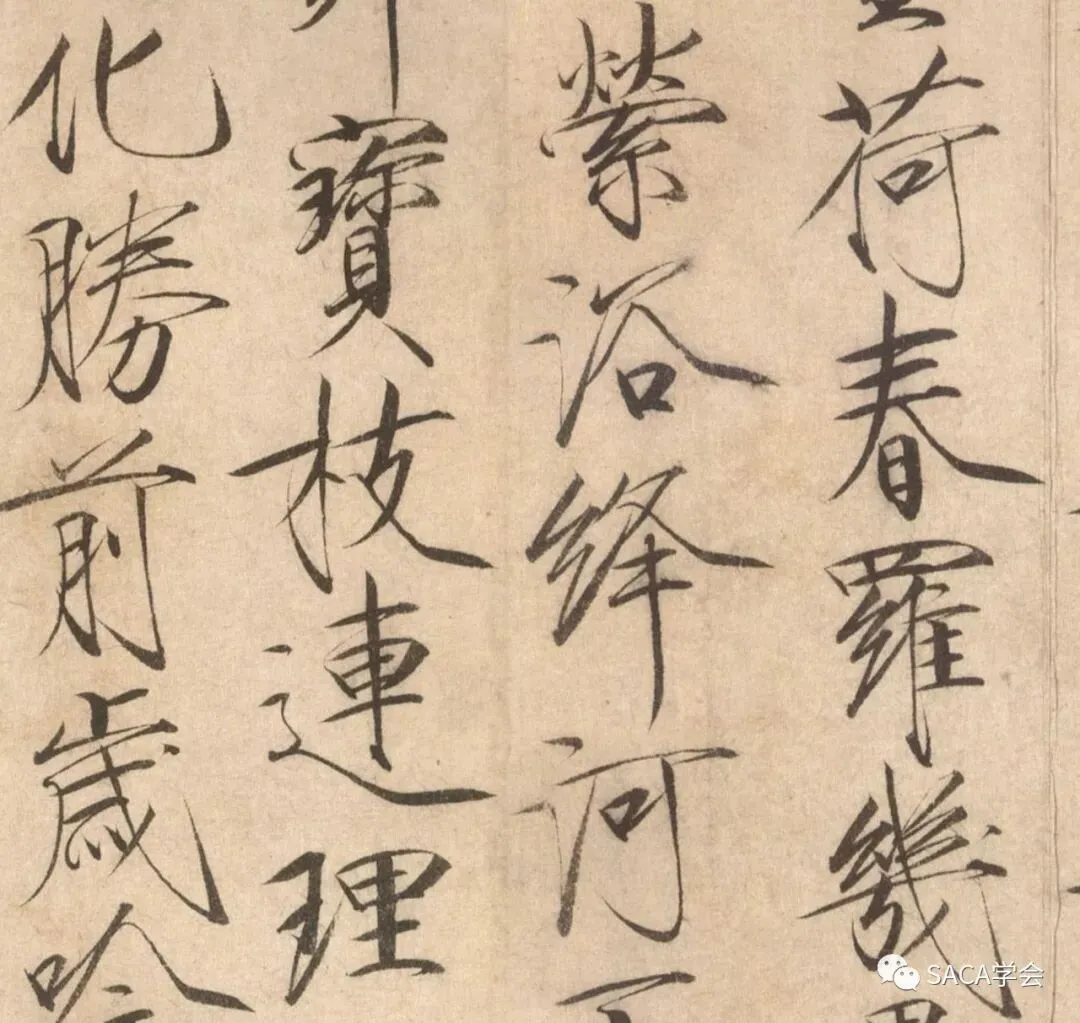 荷春羅幾
縈浴絳河
寶枝連理
化勝前歲
SACA学会